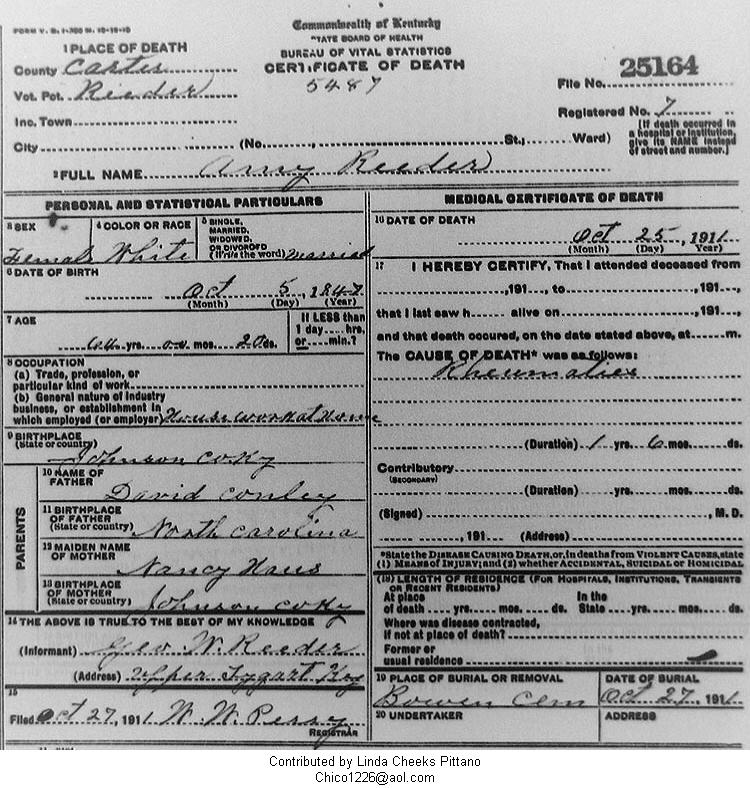 FORM V. S. 1-
Commonwealth of Kentucky
STATE BOARD OF HEALTH
BUREAU OF VITAL STATISTICS
CERTIFICATE OF DEATH
5487
1 PLACE OF DEATH
County Carter
Vot. Pct. Reeder
Inc. Town
City (No. St.; Ward)
File No. 25164
Registered No. 7
(If death occurred in a hospital or institution, give its NAME instead of street and number.)
2 FULL NAME Amy Reeder
PERSONAL AND STATISTICAL PARTICULARS
3 SEX Female
4 COLOR OR RACE White
5 SINGLE, MARRIED, WIDOWED, OR DIVORCED (Write the word) Married
6 DATE OF BIRTH
Oct 5, 1847
(Month) (Day) (Year)
7 AGE
yrs. mos. 20 ds.
If LESS than 1 day hrs. or min.?
8 OCCUPATION
(a) Trade, profession, or particular kind of work
(b) General nature of industry business, or establishment in which employed (or employer) House work at Home
9 BIRTHPLACE (State or country) Johnson Co Ky
PARENTS
10 NAME OF FATHER David Conley
11 BIRTHPLACE OF FATHER (State or country) North Carolina
12 MAIDEN NAME OF MOTHER Nancy
13 BIRTHPLACE OF MOTHER (State or country) Johnson Co Ky
14 THE ABOVE IS TRUE TO THE BEST OF MY KNOWLEDGE
(Informant) Geo W. Reeder
(Address) Upper Tygart Ky
15
Filed Oct 27, 1911 W. W. Perry
REGISTRAR
MEDICAL CERTIFICATE OF DEATH
16 DATE OF DEATH
Oct 25, 1911
(Month) (Day) Year)
17 I HEREBY CERTIFY, That I attended deceased from
,191 , to ,191 ,
that I last saw h alive on ,191 ,
and that death occured, on the date stated above, at m.
The CAUSE OF DEATH* was as follows:
(Duration) 1 yrs. 6 mos. ds.
Contributory
(SECONDARY)
(Duration) yrs. mos. ds.
(Signed) , M. D.
, 191 (Address)
*State the DISEASE CAUSING DEATH, or, in deaths from VIOLENT CAUSES, state
(1) MEANS OF INJURY; and (2) whether ACCIDENTAL, SUICIDAL or HOMICIDAL
(18) LENGTH OF RESIDENCE (FOR HOSPITALS, INSTITUTIONS, TRANSIENTS
OR RECENT RESIDENTS)
At place of death yrs. mos. ds. In the State yrs. mos. ds.
Where was disease contracted,
if not at place of death?
Former or
usual residence
19 PLACE OF BURIAL OR REMOVAL
Bowen Cem
DATE OF BURIAL
Oct 27, 1911
20 UNDERTAKER
ADDRESS
Contributed by Linda Cheeks Pittano
Chico1226@aol.com